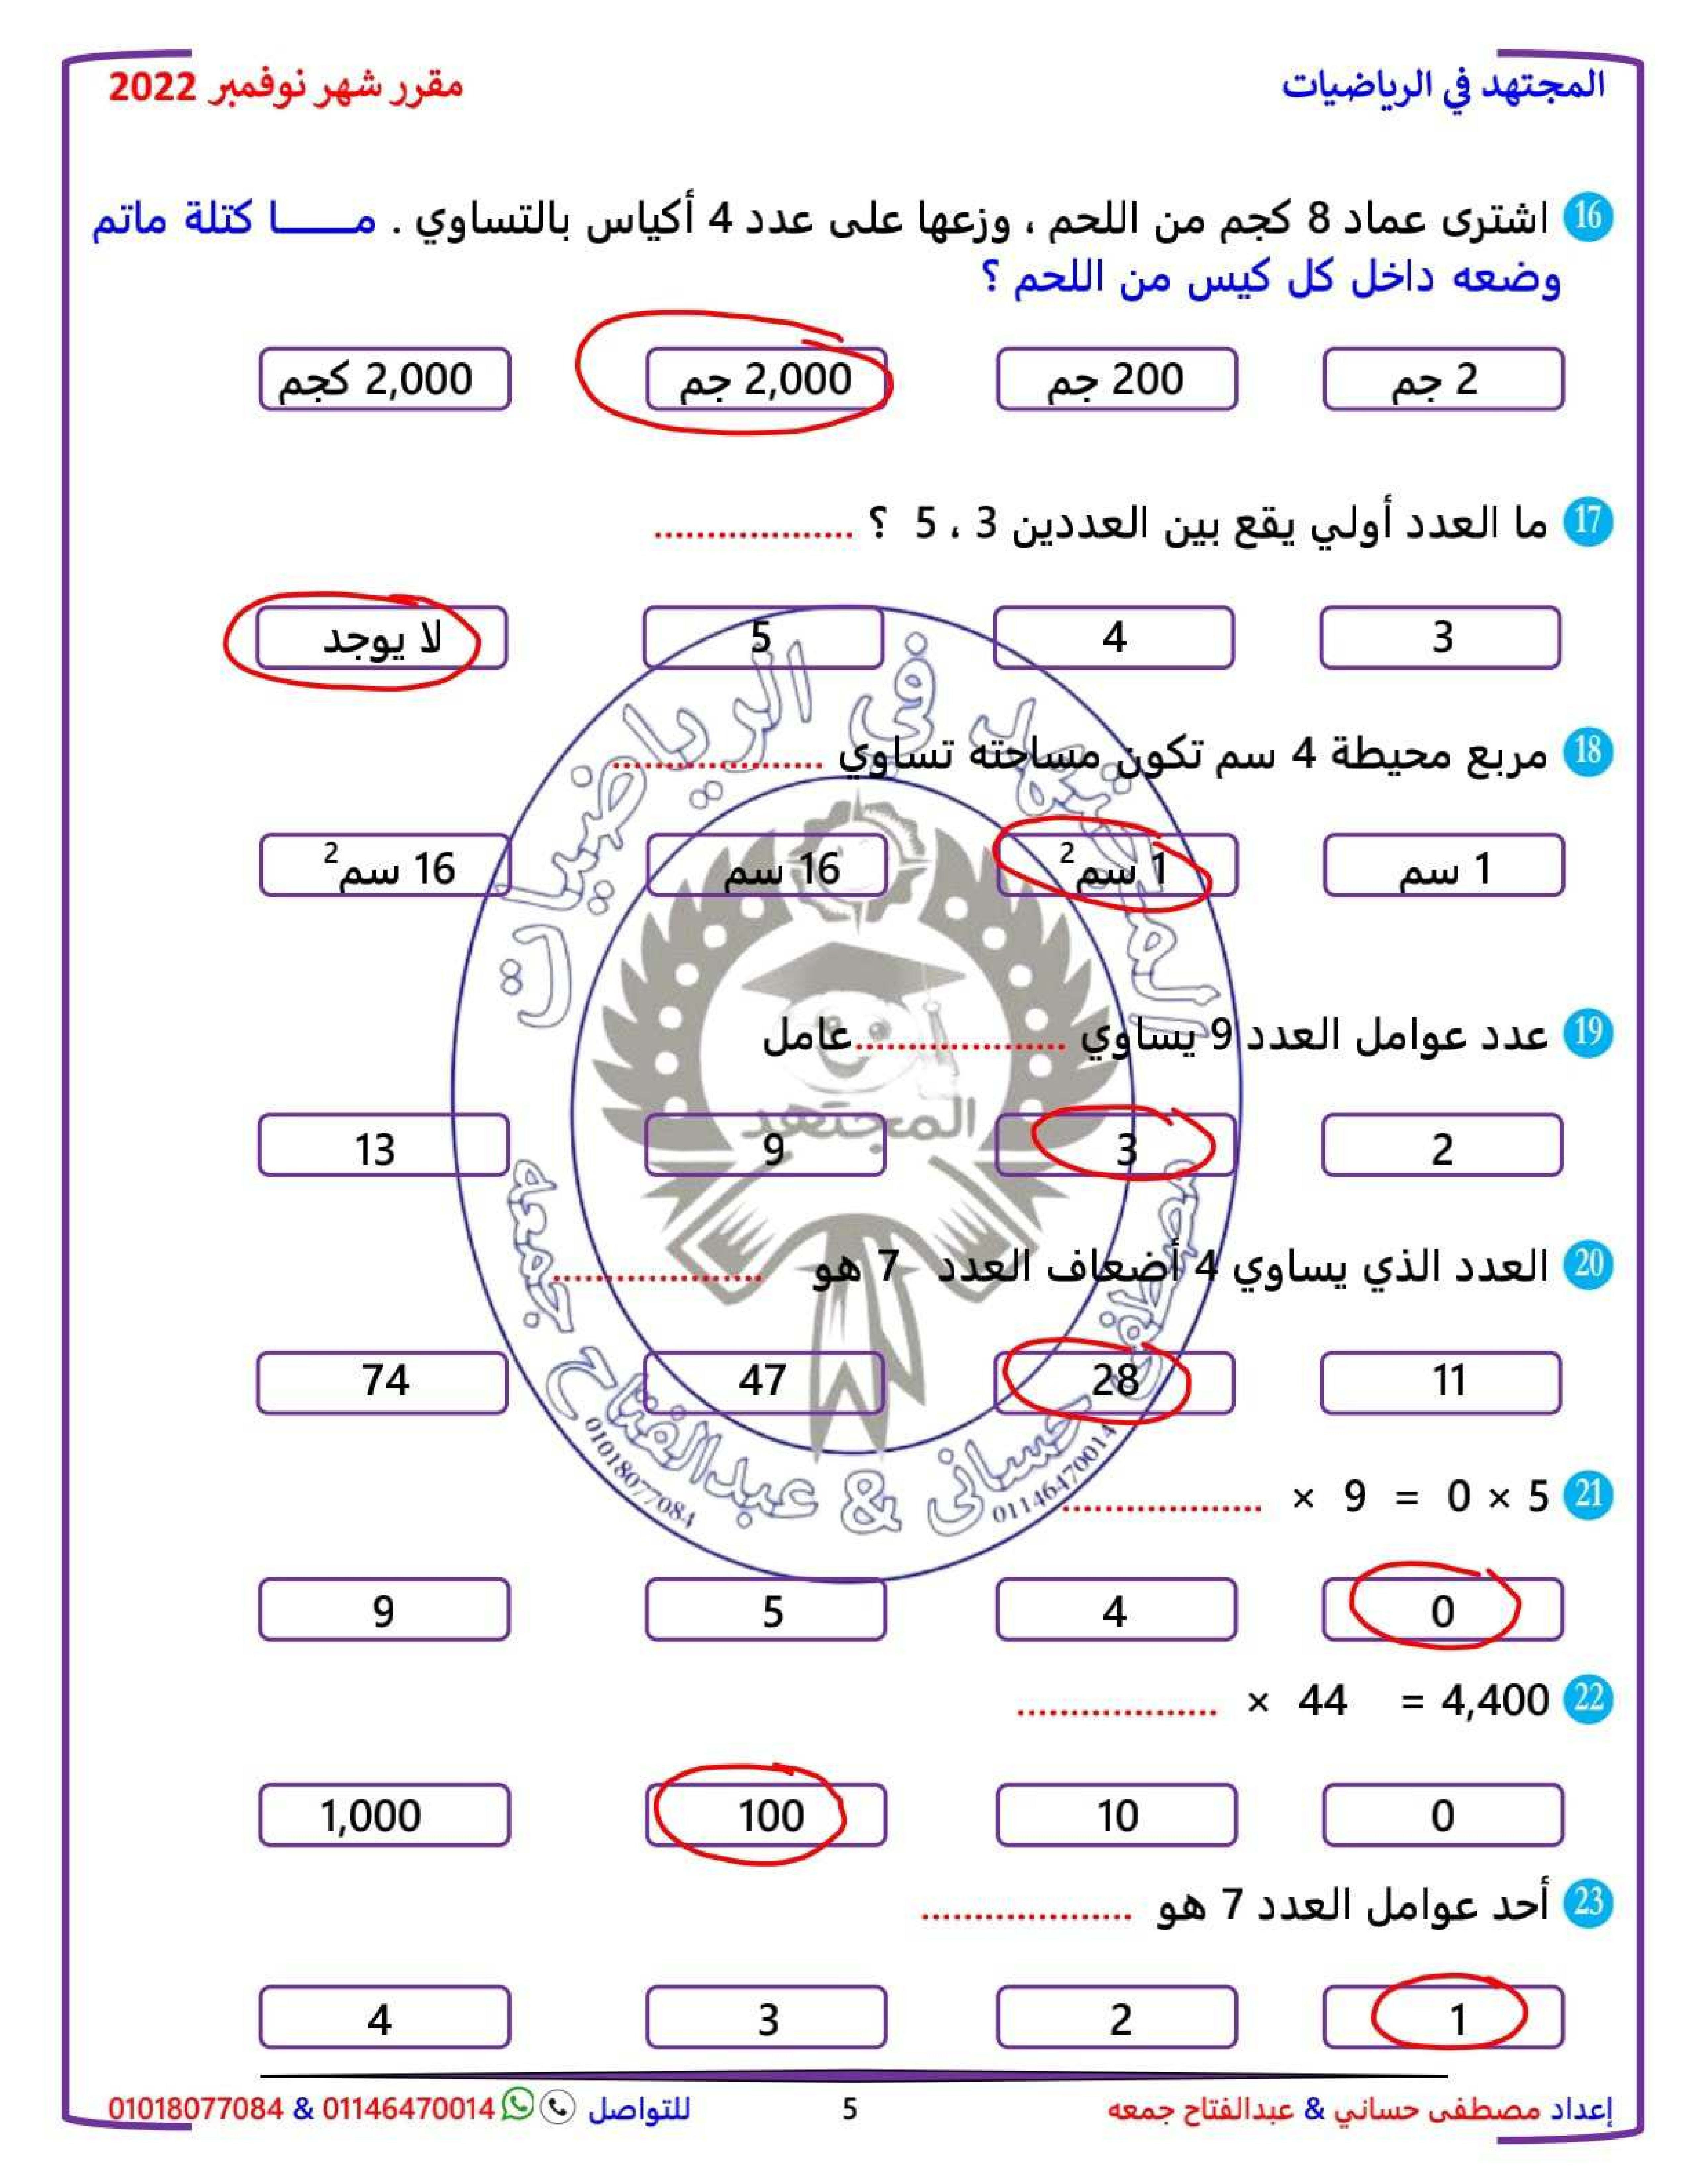 المجتهد في الرياضيات
مقرر شهر نوفمبر 2022
16 اشترى عماد 8 كجم من اللحم ، وزعها على عدد 4 أكياس بالتساوي . مـــــا كتلة ماتم
وضعه داخل كل كيس من اللحم ؟
2 جم
200 جم
2,000 جم
2,000 كجم
17 ما العدد أولي يقع بين العددين 3 ، 5 ؟ ...................
3
4
5
لا يوجد
18 مربع محيطة 4 سم تكون مساحته تساوي ....................
1 سم
1 سم²
16 سم
16 سم²
19 عدد عوامل العدد 9 يساوي ....................عامل
2
3
9
13
20 العدد الذي يساوي 4 أضعاف العدد 7 هو ....................
11
28
47
74
21 5 × 0 = 9 × ...................
0
4
5
9
22 4,400 = 44 × ...................
0
10
100
1,000
23 أحد عوامل العدد 7 هو ....................
1
2
3
4
المجتهد في الرياضيات
المجتهد
مصطفى حسانى & عبدالفتاح جمعه
01146470014
01018077084
إعداد مصطفى حساني & عبدالفتاح جمعه
5
للتواصل 01146470014 & 01018077084